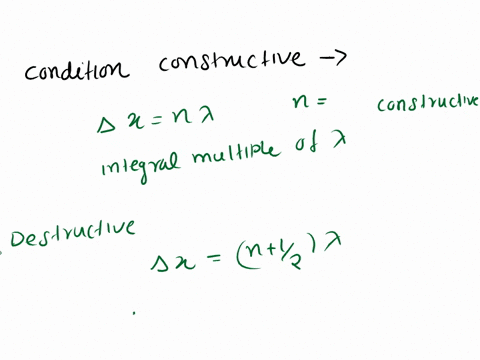 condition constructive →
Δx = nλ n = constructive
integral multiple of λ
Destructive
Δx = (n+1/2)λ